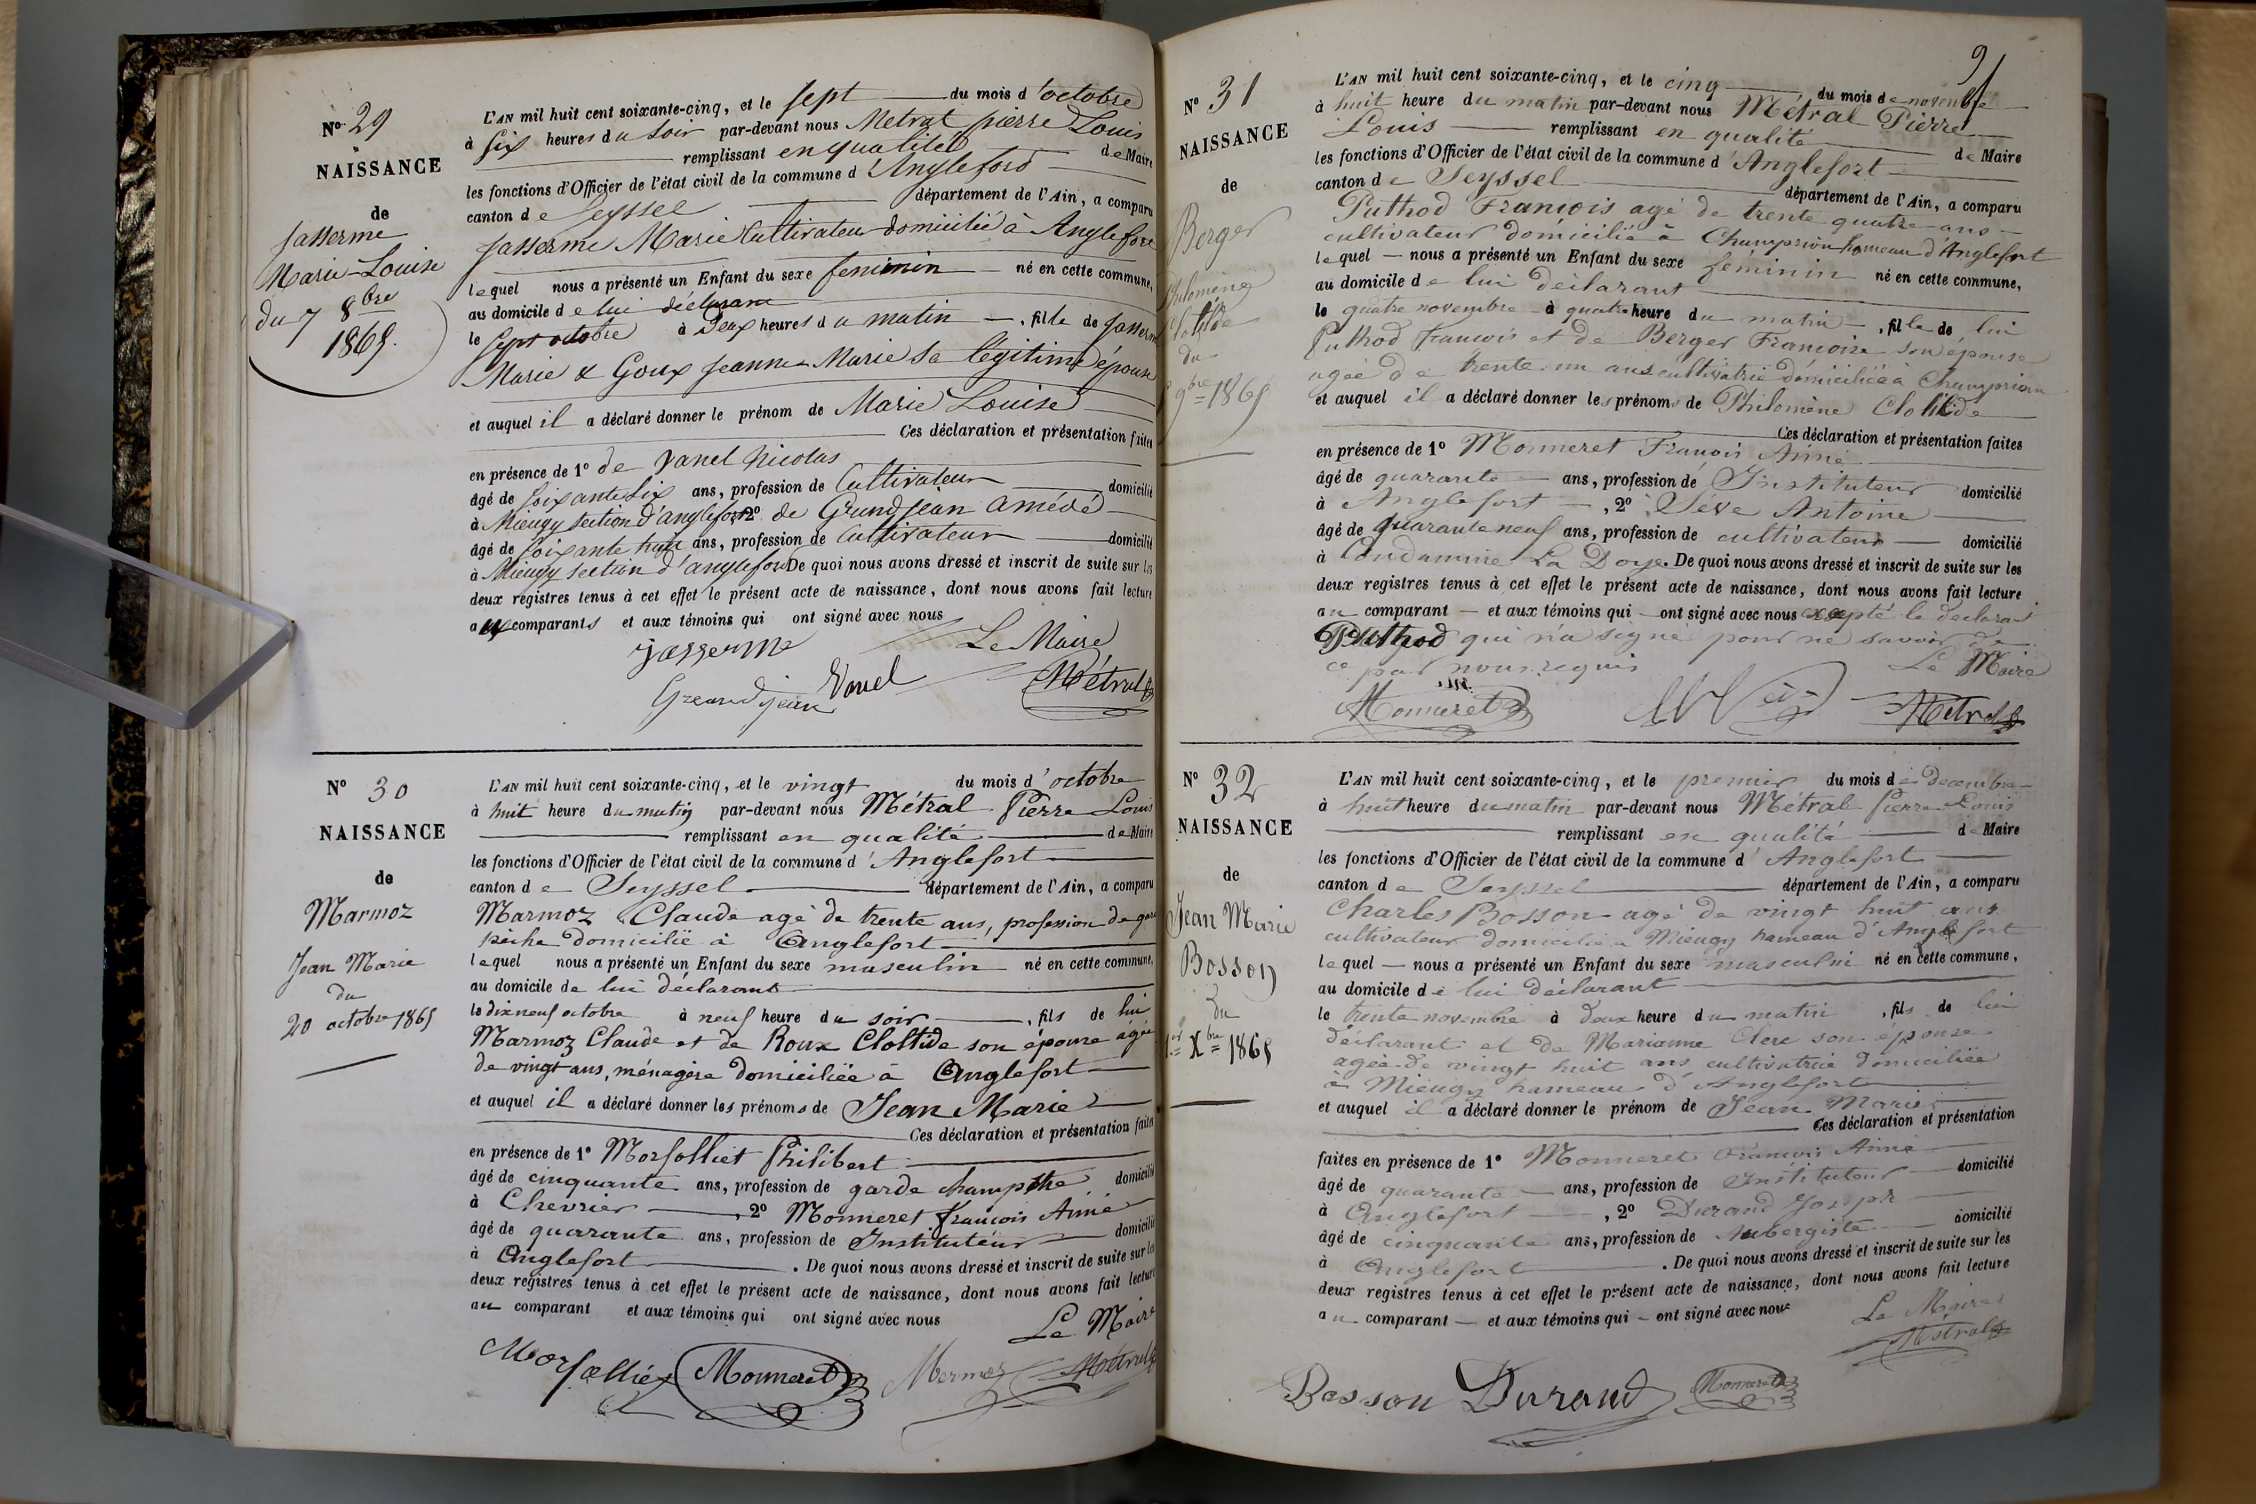 Nº 29
NAISSANCE
de
Jasserme
Marie-Louise
du 7 8bre
1865.
L'AN mil huit cent soixante-cinq, et le sept du mois d'octobre
à six heures du soir par-devant nous Métral pierre Louis
remplissant en qualité de Maire
les fonctions d'Officier de l'état civil de la commune d'Angleford
canton de Seyssel département de l'Ain, a comparu
Jasserme Marie Cultivateur domicilié à Anglefort
lequel nous a présenté un Enfant du sexe feminin né en cette commune,
au domicile de lui déclarant
le sept octobre à deux heures du matin, fille de Jasserme
Marie & Goux Jeanne-Marie sa légitime épouse
et auquel il a déclaré donner le prénom de Marie Louise
Ces déclaration et présentation faites
en présence de 1º de Vanel Nicolas
âgé de soixante six ans, profession de Cultivateur domicilié
à Mieugy section d'anglefort 2º de Grandjean amédé
âgé de soixante huit ans, profession de Cultivateur domicilié
à Mieugy section d'anglefort De quoi nous avons dressé et inscrit de suite sur les
deux registres tenus à cet effet le présent acte de naissance, dont nous avons fait lecture
aux comparants et aux témoins qui ont signé avec nous
Jasserme Le Maire
Grandjean Vanel Métral
Nº 30
NAISSANCE
de
Marmoz
Jean Marie
du
20 octobre 1865
L'AN mil huit cent soixante-cinq, et le vingt du mois d'octobre
à huit heure du matin par-devant nous Métral Pierre Louis
remplissant en qualité de Maire
les fonctions d'Officier de l'état civil de la commune d'Anglefort
canton de Seyssel département de l'Ain, a comparu
Marmoz Claude agé de trente ans, profession de garde
pêche domicilié à Anglefort
lequel nous a présenté un Enfant du sexe masculin né en cette commune,
au domicile de lui déclarant
le dix neuf octobre à neuf heure du soir, fils de lui
Marmoz Claude et de Roux Cloltide son épouse âgée
de vingt ans, ménagère domiciliée à Anglefort
et auquel il a déclaré donner les prénoms de Jean Marie
Ces déclaration et présentation faites
en présence de 1º Morfolliet Philibert
âgé de cinquante ans, profession de garde champtre domicilié
à Chevrier, 2º Monneret François Aimé
âgé de quarante ans, profession de Instituteur domicilié
à Anglefort. De quoi nous avons dressé et inscrit de suite sur les
deux registres tenus à cet effet le présent acte de naissance, dont nous avons fait lecture
au comparant et aux témoins qui ont signé avec nous
Le Maire
Monneret Mermoz Métral
91
Nº 31
NAISSANCE
de
Berger
Philomène
Clotilde
du
9bre 1865
L'AN mil huit cent soixante-cinq, et le cinq du mois de novembre
à huit heure du matin par-devant nous Métral Pierre
Louis remplissant en qualité de Maire
les fonctions d'Officier de l'état civil de la commune d'Anglefort
canton de Seyssel département de l'Ain, a comparu
Puthod François agé de trente quatre ans
cultivateur domicilié à Champrion hameau d'Anglefort
lequel nous a présenté un Enfant du sexe féminin né en cette commune,
au domicile de lui déclarant
le quatre novembre à quatre heure du matin, fille de lui
Puthod François et de Berger Françoise son épouse
agée de trente un ans cultivatrice domiciliée à Champrion
et auquel il a déclaré donner les prénoms de Philomène Clotilde
Ces déclaration et présentation faites
en présence de 1º Monneret François Aimé
âgé de quarante ans, profession de Instituteur domicilié
à Anglefort, 2º Sève Antoine
âgé de quarante neuf ans, profession de cultivateur domicilié
à Condamine La Doye. De quoi nous avons dressé et inscrit de suite sur les
deux registres tenus à cet effet le présent acte de naissance, dont nous avons fait lecture
au comparant et aux témoins qui ont signé avec nous excepté le déclarant
Puthod qui n'a signé pour ne savoir de
ce par nous requis Le Maire
Monneret Métral
Nº 32
NAISSANCE
de
Jean Marie
Bosson
du
1er Xbre 1865
L'AN mil huit cent soixante-cinq, et le premier du mois de decembre
à huit heure du matin par-devant nous Métral Pierre Louis
remplissant en qualité de Maire
les fonctions d'Officier de l'état civil de la commune d'Anglefort
canton de Seyssel département de l'Ain, a comparu
Charles Bosson agé de vingt huit ans
cultivateur domicilié à Mieugy hameau d'Anglefort
lequel nous a présenté un Enfant du sexe masculin né en cette commune,
au domicile de lui déclarant
le trente novembre à deux heure du matin, fils de lui
déclarant et de Marianne Clerc son épouse
agée de vingt huit ans cultivatrice domiciliée
à Mieugy hameau d'Anglefort
et auquel il a déclaré donner le prénom de Jean Marie
Ces déclaration et présentation
faites en présence de 1º Monneret François Aimé
âgé de quarante ans, profession de Instituteur domicilié
à Anglefort, 2º Durand Joseph
âgé de cinquante ans, profession de Aubergiste domicilié
à Anglefort. De quoi nous avons dressé et inscrit de suite sur les
deux registres tenus à cet effet le présent acte de naissance, dont nous avons fait lecture
au comparant et aux témoins qui ont signé avec nous
Le Maire
Métral
Bosson Durand Monneret